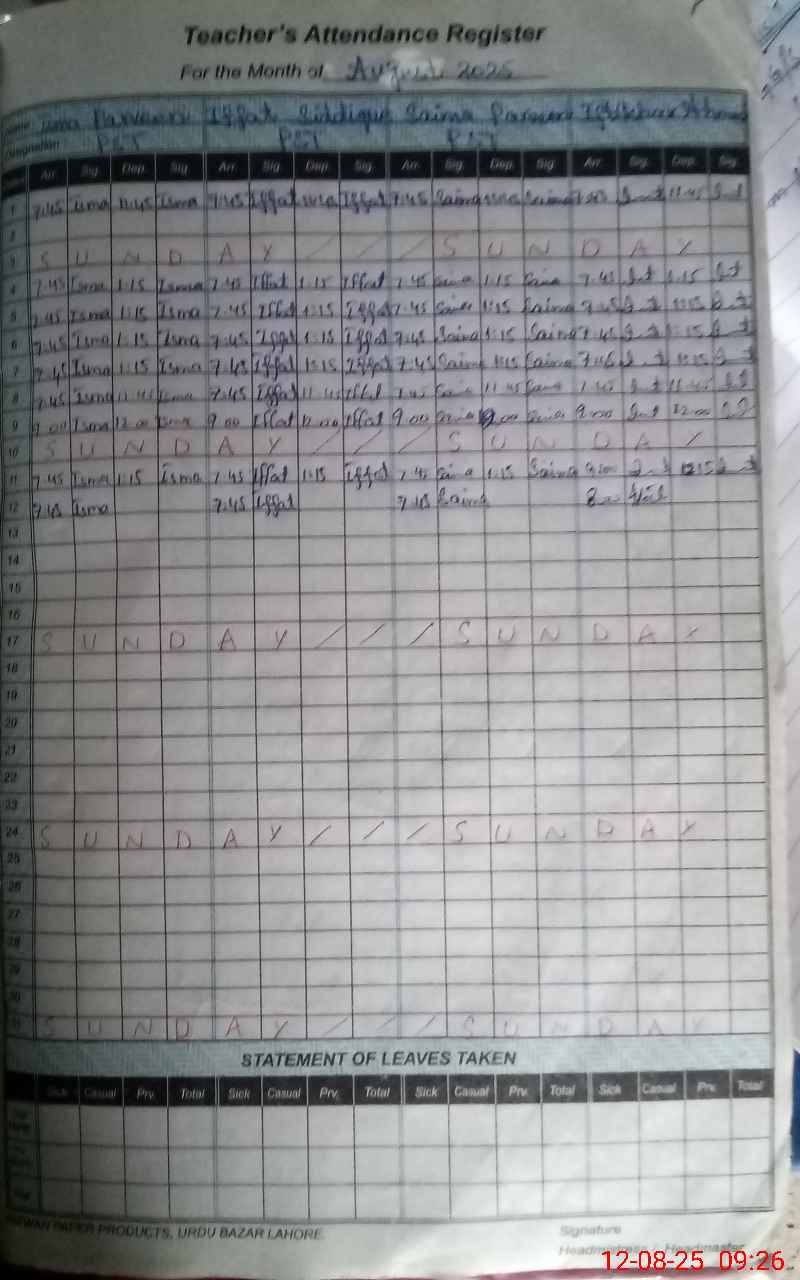 Teacher's Attendance Register
For the Month of August 2025
Name Isma Parveen Iffat Siddique Saima Parveen Iftikhar Ahmad
Designation PST PST PST
Arr. Sig. Dep. Sig. Arr. Sig. Dep. Sig. Arr. Sig. Dep. Sig. Arr. Sig. Dep. Sig.
1 7.45 Isma 11.45 Isma 7.45 Iffat Iffat 7.45 Saima Saima 11.45
2
3 S U N D A Y / / / S U N D A Y
4 7.45 Isma 1.15 Isma 7.45 Iffat 1.15 Iffat 7.45 Saima 1.15 Saima 7.45 1.15
5 7.45 Isma 1.15 Isma 7.45 Iffat 1.15 Iffat 7.45 Saima 1.15 Saima 7.45 1.15
6 7.45 Isma 1.15 Isma 7.45 Iffat 1.15 Iffat 7.45 Saima 1.15 Saima 7.45 1.15
7 7.45 Isma 1.15 Isma 7.45 Iffat 1.15 Iffat 7.45 Saima 1.15 Saima 1.15
8 7.45 Isma 11.45 Isma 7.45 Iffat 11.45 Iffat 7.45 Saima 11.45 Saima 7.45 11.45
9 9.00 Isma 12.00 Isma 9.00 Iffat 12.00 Iffat 9.00 Saima Saima 9.00 12.00
10 S U N D A Y / / / S U N D A Y /
11 7.45 Isma 1.15 Isma 7.45 Iffat 1.15 Iffat 7.45 Saima 1.15 Saima
12 7.45 Isma 7.45 Iffat 7.45 Saima
13
14
15
16
17 S U N D A Y / / / S U N D A Y
18
19
20
21
22
23
24 S U N D A Y / / / S U N D A Y
25
26
27
28
29
30
31 S U N D A Y / / / S U N D A Y
STATEMENT OF LEAVES TAKEN
Sick Casual Prv. Total Sick Casual Prv. Total Sick Casual Prv. Total Sick Casual Prv. Total
PAPER PRODUCTS, URDU BAZAR LAHORE.
Signature
Headmistress / Headmaster
12-08-25 09:26